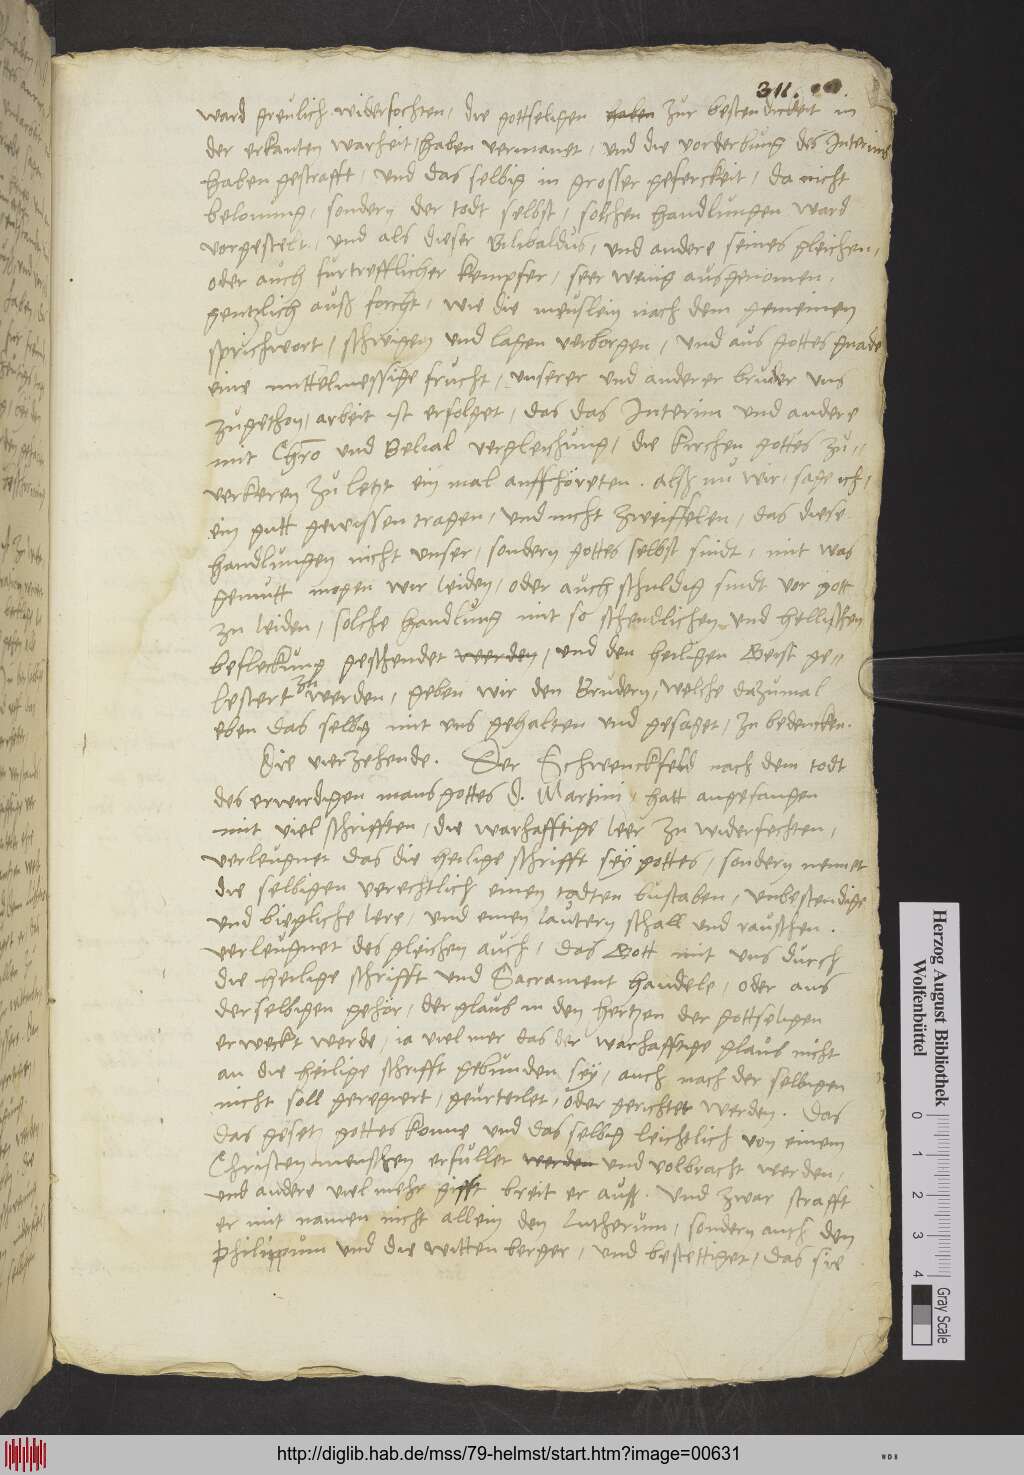 311.
ward greulich widerfochten, die gottseligen haben zur bestendickeit in
der erkanten warheit, haben vermanet, und die vorderbung des Interims
haben gestrafft, und das selbig in grosser geferckeit, da nicht
belonung, sondern der todt selbst, solchen handlungen ward
vorgestelt, und als dieser Bilibaldus, und andere seines gleichen,
oder auch furtrefflicher kempfer, seer wenig ausgenomen,
gentzlich auß forcht, wie die meuslein nach dem gemeinen
sprichwort, schwigen und lagen verborgen, und aus gottes gnade
eine mittelmessige frucht, unserer und anderer bruder uns
zugethon, arbeit ist erfolget, das das Interim und andere
mit Chro und Belial vergleichung, die kirchen gottes zu=
verkeren zu letzt ein mal auffhöreten. Alß nu wir, sage ich,
ein gutt gewissen tragen, und nicht zweiffelen, das diese
handlungen nicht unser, sondern gottes selbst sindt, mit was
gemutt mogen wir leiden, oder auch schuldig sindt vor gott
zu leiden, solche handlung mit so schendlichen und hellischen
befleckung geschendet werden, und den heiligen Geist ge=
lestert zu werden, geben wir den Brudern, welche dazumal
eben das selbig mit uns gehalten und gesaget, zu bedencken.
Die vierzehende. Der Schwenckfeld nach dem todt
des erwirdigen mans gottes d. Martini, hatt angefangen
mit viel schrifften, die warhafftige leer zu widerfechten,
verleugnet das die heilige schrifft sey gottes, sondern nennet
die selbigen verechtlich einen todten bustaben, unbestendige
und biegliche lere, und einen lautern schall und rauschen.
verleugnet des gleichen auch, das Gott mit uns durch
die heilige schrifft und Sacrament handele, oder aus
derselbigen gehör, der glaub in den hertzen der gottseligen
erweckt werde, ia viel mer das der warhafftige glaub nicht
an die heilige schrifft gebunden sey, auch nach der selbigen
nicht soll geregiert, geurteilet, oder gerichtet werden. Das
das gesetz gottes konne und das selbig leichtlich von einem
Christenmenschen erfullet werden und volbracht werden,
und andere viel mehr gifft breit er auß. Und zwar strafft
er mit namen nicht allein den Lutherum, sondern auch den
Philippum und die wittenberger, und bestettiget, das sie
Herzog August Bibliothek
Wolfenbüttel
0 1 2 3 4
Gray Scale
http://diglib.hab.de/mss/79-helmst/start.htm?image=00631